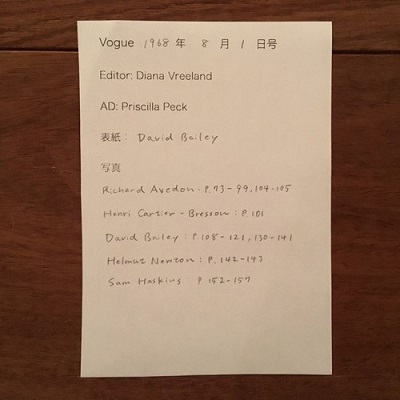 Vogue 1968 年 8 月 1 日号
Editor: Diana Vreeland
AD: Priscilla Peck
表紙: David Bailey
写真
Richard Avedon. P.73-99, 104-105
Henri Cartier-Bresson: P.101
David Bailey: P.108-121, 130-141
Helmut Newton: P.142-143
Sam Haskins P 152-157